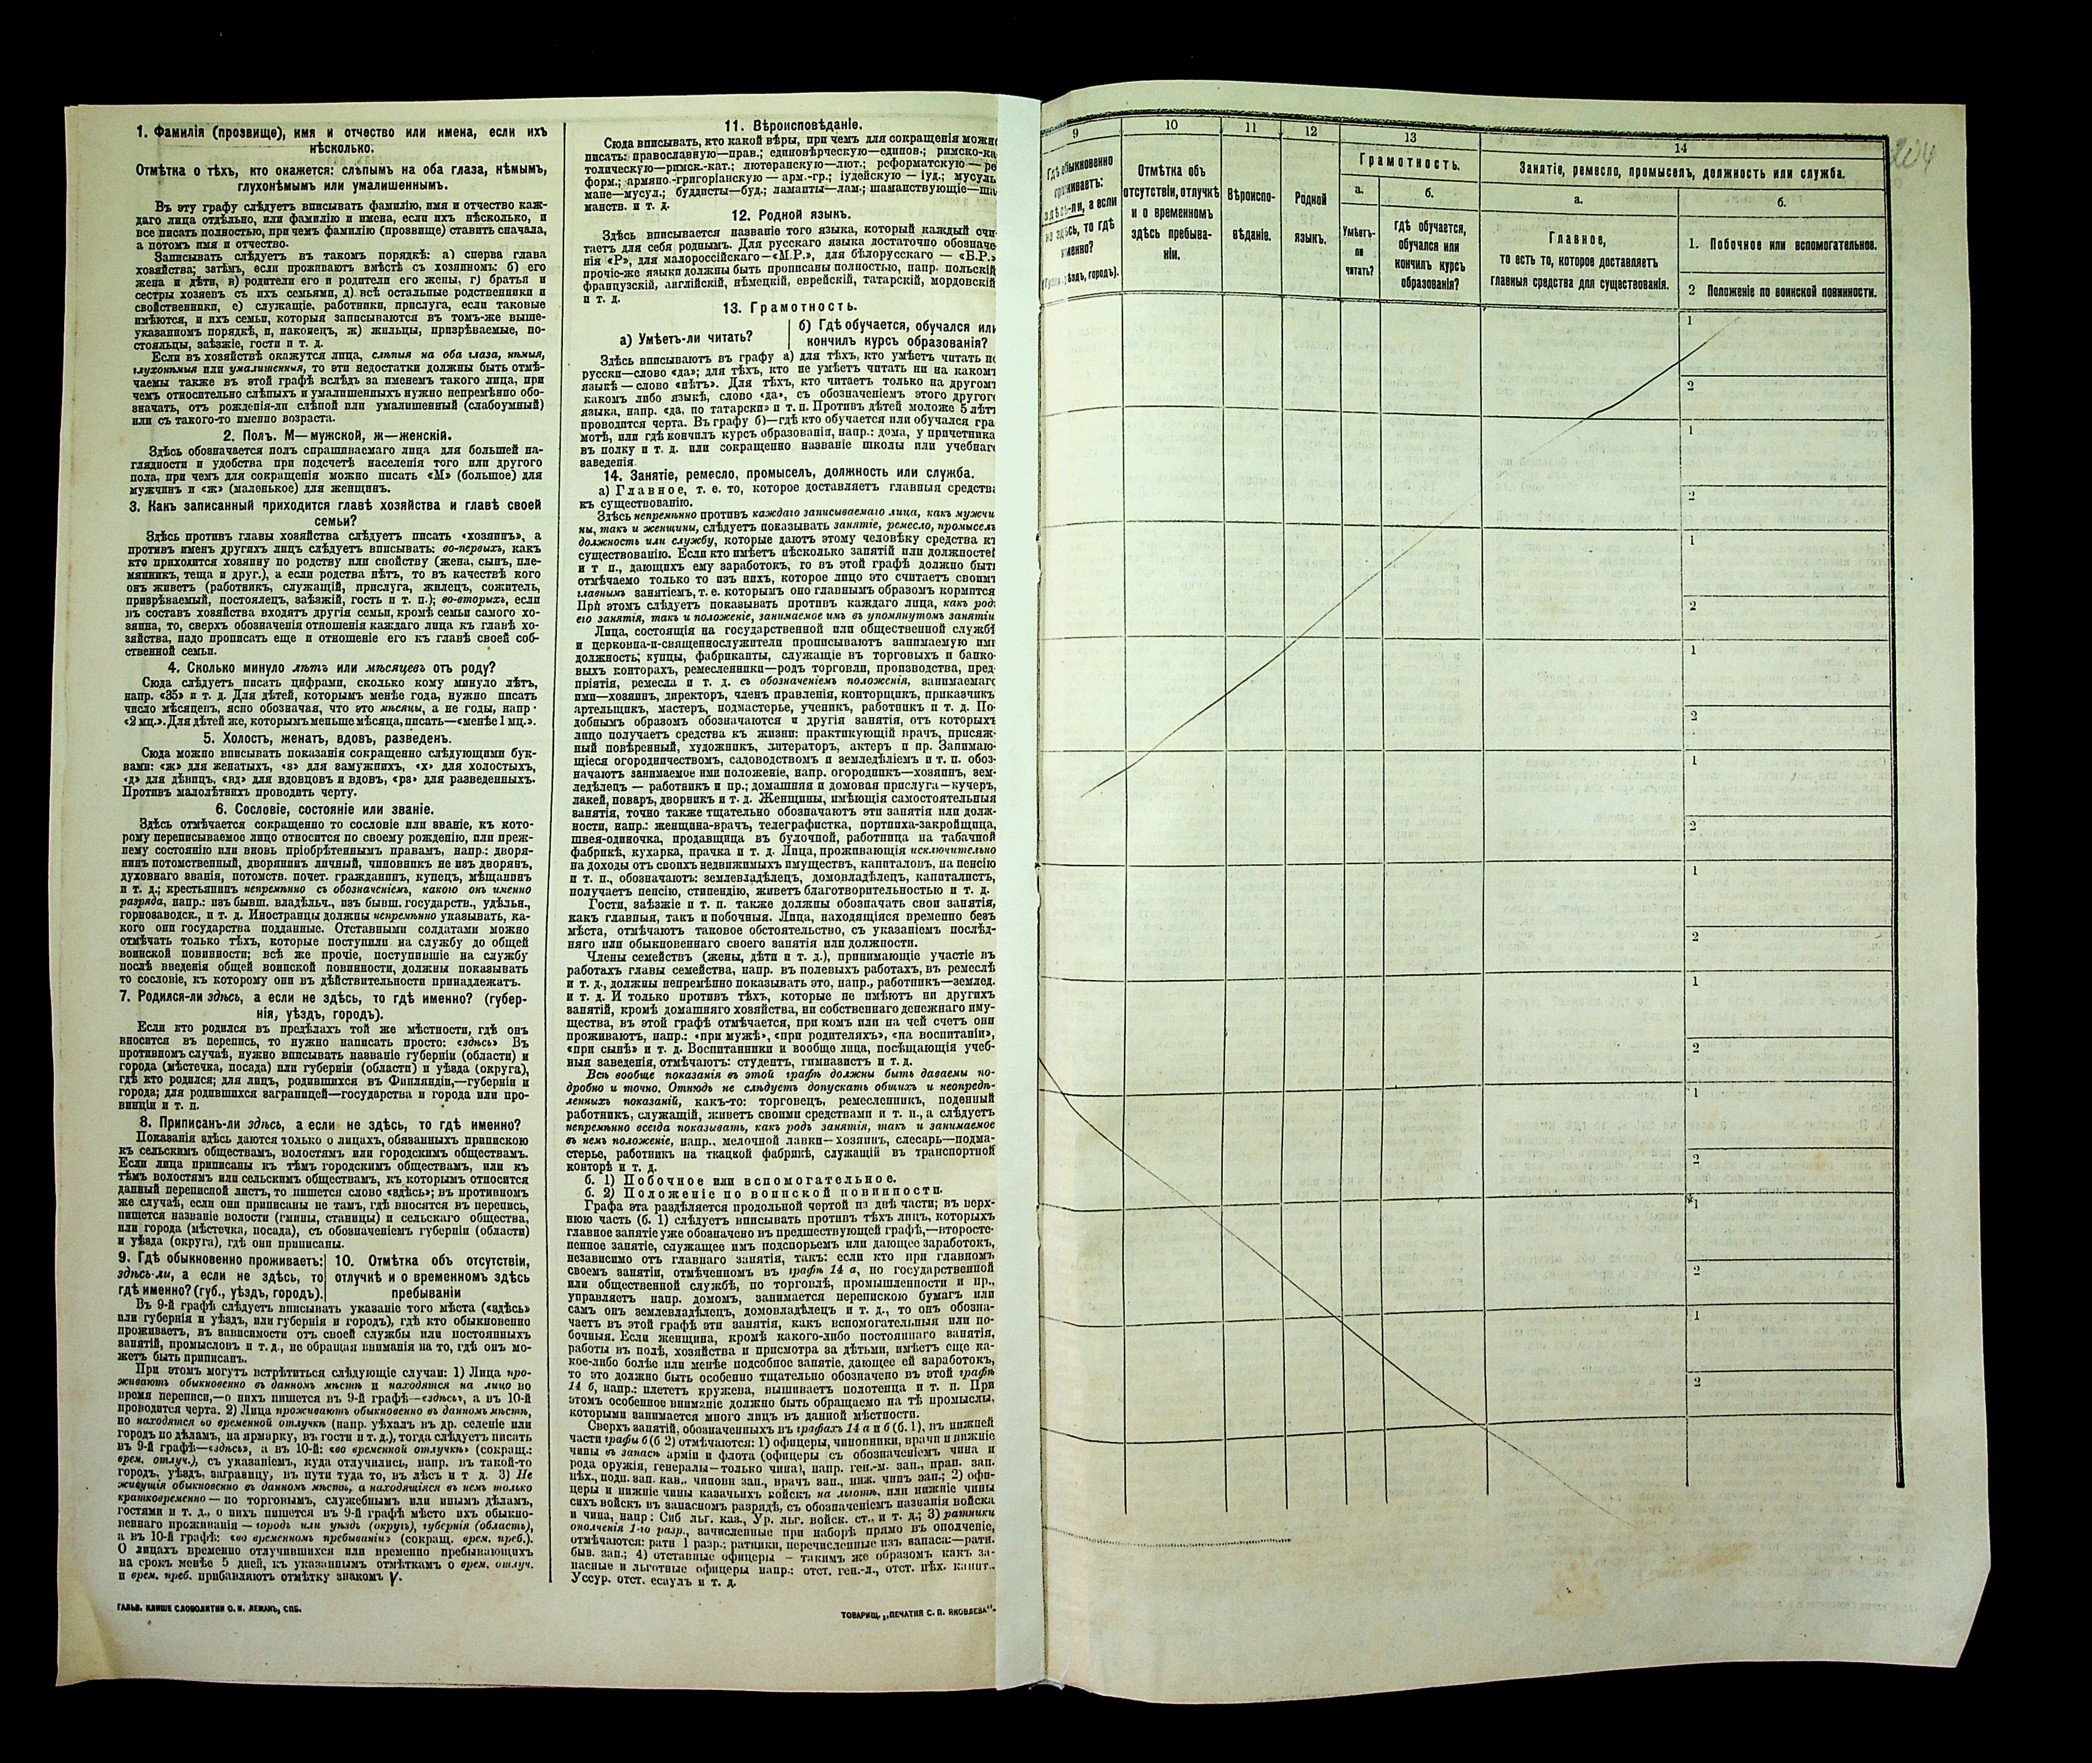 1. Фамилія (прозвище), имя и отчество или имена, если ихъ
нѣсколько.
Отмѣтка о тѣхъ, кто окажется: слѣпымъ на оба глаза, нѣмымъ,
глухонѣмымъ или умалишеннымъ.
Въ эту графу слѣдуетъ вписывать фамилію, имя и отчество каж-
даго лица отдѣльно, или фамилію и имена, если ихъ нѣсколько, и
все писать полностью, при чемъ фамилію (прозвище) ставить сначала,
а потомъ имя и отчество.
Записывать слѣдуетъ въ такомъ порядкѣ: а) сперва глава
хозяйства; затѣмъ, если проживаютъ вмѣстѣ съ хозяиномъ: б) его
жена и дѣти, в) родители его и родители его жены, г) братья и
сестры хозяевъ съ ихъ семьями, д) всѣ остальные родственники и
свойственники, е) служащіе, работники, прислуга, если таковые
имѣются, и ихъ семьи, которыя записываются въ томъ-же выше-
указанномъ порядкѣ, и, наконецъ, ж) жильцы, призрѣваемые, по-
стояльцы, заѣзжіе, гости и т. д.
Если въ хозяйствѣ окажутся лица, слѣпыя на оба глаза, нѣмыя,
глухонѣмыя или умалишенныя, то эти недостатки должны быть отмѣ-
чаемы также въ этой графѣ вслѣдъ за именемъ такого лица, при
чемъ относительно слѣпыхъ и умалишенныхъ нужно непремѣнно обо-
значать, отъ рожденія-ли слѣпой или умалишенный (слабоумный)
или съ такого-то именно возраста.
2. Полъ. М—мужской, ж—женскій.
Здѣсь обозначается полъ спрашиваемаго лица для большей на-
глядности и удобства при подсчетѣ населенія того или другого
пола, при чемъ для сокращенія можно писать «М» (большое) для
мужчинъ и «ж» (маленькое) для женщинъ.
3. Какъ записанный приходится главѣ хозяйства и главѣ своей
семьи?
Здѣсь противъ главы хозяйства слѣдуетъ писать «хозяинъ», а
противъ именъ другихъ лицъ слѣдуетъ вписывать: во-первыхъ, какъ
кто приходится хозяину по родству или свойству (жена, сынъ, пле-
мянникъ, теща и друг.), а если родства нѣтъ, то въ качествѣ кого
онъ живетъ (работникъ, служащій, прислуга, жилецъ, сожитель,
призрѣваемый, постоялецъ, заѣзжій, гость и т. п.); во-вторыхъ, если
въ составъ хозяйства входятъ другія семьи, кромѣ семьи самого хо-
зяина, то, сверхъ обозначенія отношенія каждаго лица къ главѣ хо-
зяйства, надо прописать еще и отношеніе его къ главѣ своей соб-
ственной семьи.
4. Сколько минуло лѣтъ или мѣсяцевъ отъ роду?
Сюда слѣдуетъ писать цифрами, сколько кому минуло лѣтъ,
напр. «35» и т. д. Для дѣтей, которымъ менѣе года, нужно писать
число мѣсяцевъ, ясно обозначая, что это мѣсяцы, а не годы, напр·
«2 мц.». Для дѣтей же, которымъ меньше мѣсяца, писать—«менѣе 1 мц.».
5. Холостъ, женатъ, вдовъ, разведенъ.
Сюда можно вписывать показанія сокращенно слѣдующими бук-
вами: «ж» для женатыхъ, «з» для замужнихъ, «х» для холостыхъ,
«д» для дѣвицъ, «вд» для вдовцовъ и вдовъ, «рз» для разведенныхъ.
Противъ малолѣтнихъ проводить черту.
6. Сословіе, состояніе или званіе.
Здѣсь отмѣчается сокращенно то сословіе или званіе, къ кото-
рому переписываемое лицо относится по своему рожденію, или преж-
нему состоянію или вновь пріобрѣтеннымъ правамъ, напр.: дворя-
нинъ потомственный, дворянинъ личный, чиновникъ не изъ дворянъ,
духовнаго званія, потомств. почет. гражданинъ, купецъ, мѣщанинъ
и т. д.; крестьянинъ непремѣнно съ обозначеніемъ, какого онъ именно
разряда, напр.: изъ бывш. владѣльч., изъ бывш. государств., удѣльн.,
горнозаводск., и т. д. Иностранцы должны непремѣнно указывать, ка-
кого они государства подданные. Отставными солдатами можно
отмѣчать только тѣхъ, которые поступили на службу до общей
воинской повинности; всѣ же прочіе, поступившіе на службу
послѣ введенія общей воинской повинности, должны показывать
то сословіе, къ которому они въ дѣйствительности принадлежатъ.
7. Родился-ли здѣсь, а если не здѣсь, то гдѣ именно? (губер-
нія, уѣздъ, городъ).
Если кто родился въ предѣлахъ той же мѣстности, гдѣ онъ
вносится въ перепись, то нужно написать просто: «здѣсь» Въ
противномъ случаѣ, нужно вписывать названіе губерніи (области) и
города (мѣстечка, посада) или губерніи (области) и уѣзда (округа),
гдѣ кто родился; для лицъ, родившихся въ Финляндіи,—губерніи и
города; для родившихся заграницей—государства и города или про-
винціи и т. п.
8. Приписанъ-ли здѣсь, а если не здѣсь, то гдѣ именно?
Показанія здѣсь даются только о лицахъ, обязанныхъ припискою
къ сельскимъ обществамъ, волостямъ или городскимъ обществамъ.
Если лица приписаны къ тѣмъ городскимъ обществамъ, или къ
тѣмъ волостямъ или сельскимъ обществамъ, къ которымъ относится
данный переписной листъ, то пишется слово «здѣсь»; въ противномъ
же случаѣ, если они приписаны не тамъ, гдѣ вносятся въ перепись,
пишется названіе волости (гмины, станицы) и сельскаго общества,
или города (мѣстечка, посада), съ обозначеніемъ губерніи (области)
и уѣзда (округа), гдѣ они приписаны.
9. Гдѣ обыкновенно проживаетъ:
здѣсь-ли, а если не здѣсь, то
гдѣ именно? (губ., уѣздъ, городъ).
10. Отмѣтка объ отсутствіи,
отлучкѣ и о временномъ здѣсь
пребываніи
Въ 9-й графѣ слѣдуетъ вписывать указаніе того мѣста («здѣсь»
или губернія и уѣздъ, или губернія и городъ), гдѣ кто обыкновенно
проживаетъ, въ зависимости отъ своей службы или постоянныхъ
занятій, промысловъ и т. д., не обращая вниманія на то, гдѣ онъ мо-
жетъ быть приписанъ.
При этомъ могутъ встрѣтиться слѣдующіе случаи: 1) Лица про-
живаютъ обыкновенно въ данномъ мѣстѣ и находятся на лицо во
время переписи,—о нихъ пишется въ 9-й графѣ—«здѣсь», а въ 10-й
проводится черта. 2) Лица проживаютъ обыкновенно въ данномъ мѣстѣ,
но находятся во временной отлучкѣ (напр. уѣхалъ въ др. селеніе или
городъ по дѣламъ, на ярмарку, въ гости и т. д.), тогда слѣдуетъ писать
въ 9-й графѣ—«здѣсь», а въ 10-й: «во временной отлучкѣ» (сокращ.:
врем. отлуч.), съ указаніемъ, куда отлучились, напр. въ такой-то
городъ, уѣздъ, заграницу, въ пути туда то, въ лѣсъ и т д. 3) Не
живущія обыкновенно въ данномъ мѣстѣ, а находящіяся въ немъ только
кратковременно — по торговымъ, служебнымъ или инымъ дѣламъ,
гостями и т. д., о нихъ пишется въ 9-й графѣ мѣсто ихъ обыкно-
веннаго проживанія — городъ или уѣздъ (округъ), губернія (область),
а въ 10-й графѣ: «во временномъ пребываніи» (сокращ. врем. преб.).
О лицахъ временно отлучившихся или временно пребывающихъ
на срокъ менѣе 5 дней, къ указаннымъ отмѣткамъ о врем. отлуч.
и врем. преб. прибавляютъ отмѣтку знакомъ V.
ГАЛЬВ. КЛИШЕ СЛОВОЛИТНИ О. И. ЛЕМАНЪ, СПБ.
11. Вѣроисповѣданіе.
Сюда вписывать, кто какой вѣры, при чемъ для сокращенія можн
писать: православную—прав.; единовѣрческую—единов.; римско-ка
толическую—римск.-кат.; лютеранскую—лют.; реформатскую — ре
форм.; армяно-григоріанскую — арм.-гр.; іудейскую — іуд.; мусуль
мане—мусул.; буддисты—буд.; ламаиты—лам.; шаманствующіе—ша
манств. и т. д.
12. Родной языкъ.
Здѣсь вписывается названіе того языка, который каждый счи
таетъ для себя роднымъ. Для русскаго языка достаточно обозначе
нія «Р», для малороссійскаго—«М.Р.», для бѣлорусскаго — «Б.Р.»
прочіе-же языки должны быть прописаны полностью, напр. польскій
французскій, англійскій, нѣмецкій, еврейскій, татарскій, мордовскій
и т. д.
13. Грамотность.
а) Умѣетъ-ли читать?
б) Гдѣ обучается, обучался или
кончилъ курсъ образованія?
Здѣсь вписываютъ въ графу а) для тѣхъ, кто умѣетъ читать по
русски—слово «да»; для тѣхъ, кто не умѣетъ читать ни на какомъ
языкѣ — слово «нѣтъ». Для тѣхъ, кто читаетъ только на другомъ
какомъ либо языкѣ, слово «да», съ обозначеніемъ этого другого
языка, напр. «да, по татарски» и т. п. Противъ дѣтей моложе 5 лѣтъ
проводится черта. Въ графу б)—гдѣ кто обучается или обучался гра
мотѣ, или гдѣ кончилъ курсъ образованія, напр.: дома, у причетника
въ полку и т. д. или сокращенно названіе школы или учебнаго
заведенія.
14. Занятіе, ремесло, промыселъ, должность или служба.
а) Главное, т. е. то, которое доставляетъ главныя средства
къ существованію.
Здѣсь непремѣнно противъ каждаго записываемаго лица, какъ мужчи
ны, такъ и женщины, слѣдуетъ показывать занятіе, ремесло, промыселъ
должность или службу, которые даютъ этому человѣку средства къ
существованію. Если кто имѣетъ нѣсколько занятій или должностей
и т п., дающихъ ему заработокъ, то въ этой графѣ должно быть
отмѣчаемо только то изъ нихъ, которое лицо это считаетъ своимъ
главнымъ занятіемъ, т. е. которымъ оно главнымъ образомъ кормится
При этомъ слѣдуетъ показывать противъ каждаго лица, какъ родъ
его занятія, такъ и положеніе, занимаемое имъ въ упомянутомъ занятіи
Лица, состоящія на государственной или общественной службѣ
и церковно-и-священнослужители прописываютъ занимаемую ими
должность; купцы, фабриканты, служащіе въ торговыхъ и банко-
выхъ конторахъ, ремесленники—родъ торговли, производства, пред-
пріятія, ремесла и т. д. съ обозначеніемъ положенія, занимаемаго
ими—хозяинъ, директоръ, членъ правленія, конторщикъ, приказчикъ
артельщикъ, мастеръ, подмастерье, ученикъ, работникъ и т. д. По-
добнымъ образомъ обозначаются и другія занятія, отъ которыхъ
лицо получаетъ средства къ жизни: практикующій врачъ, присяж-
ный повѣренный, художникъ, литераторъ, актеръ и пр. Занимаю-
щіеся огородничествомъ, садоводствомъ и земледѣліемъ и т. п. обоз-
начаютъ занимаемое ими положеніе, напр. огородникъ—хозяинъ, зем-
ледѣлецъ — работникъ и пр.; домашняя и домовая прислуга—кучеръ,
лакей, поваръ, дворникъ и т. д. Женщины, имѣющія самостоятельныя
занятія, точно также тщательно обозначаютъ эти занятія или долж-
ности, напр.: женщина-врачъ, телеграфистка, портниха-закройщица,
швея-одиночка, продавщица въ булочной, работница на табачной
фабрикѣ, кухарка, прачка и т. д. Лица, проживающія исключительно
на доходы отъ своихъ недвижимыхъ имуществъ, капиталовъ, на пенсію
и т. п., обозначаютъ: землевладѣлецъ, домовладѣлецъ, капиталистъ,
получаетъ пенсію, стипендію, живетъ благотворительностью и т. д.
Гости, заѣзжіе и т. п. также должны обозначать свои занятія,
какъ главныя, такъ и побочныя. Лица, находящіяся временно безъ
мѣста, отмѣчаютъ таковое обстоятельство, съ указаніемъ послѣд-
няго или обыкновеннаго своего занятія или должности.
Члены семействъ (жены, дѣти и т. д.), принимающіе участіе въ
работахъ главы семейства, напр. въ полевыхъ работахъ, въ ремеслѣ
и т. д., должны непремѣнно показывать это, напр., работникъ—землед.
и т. д. И только противъ тѣхъ, которые не имѣютъ ни другихъ
занятій, кромѣ домашняго хозяйства, ни собственнаго денежнаго иму-
щества, въ этой графѣ отмѣчается, при комъ или на чей счетъ они
проживаютъ, напр.: «при мужѣ», «при родителяхъ», «на воспитаніи»,
«при сынѣ» и т. д. Воспитанники и вообще лица, посѣщающія учеб-
ныя заведенія, отмѣчаютъ: студентъ, гимназистъ и т. д.
Всѣ вообще показанія въ этой графѣ должны быть даваемы по-
дробно и точно. Отнюдь не слѣдуетъ допускать общихъ и неопредѣ-
ленныхъ показаній, какъ-то: торговецъ, ремесленникъ, поденный
работникъ, служащій, живетъ своими средствами и т. п., а слѣдуетъ
непремѣнно всегда показывать, какъ родъ занятія, такъ и занимаемое
въ немъ положеніе, напр., мелочной лавки—хозяинъ, слесарь—подма-
стерье, работникъ на ткацкой фабрикѣ, служащій въ транспортной
конторѣ и т. д.
б. 1) Побочное или вспомогательное.
б. 2) Положеніе по воинской повинности.
Графа эта раздѣляется продольной чертой на двѣ части; въ верх-
нюю часть (б. 1) слѣдуетъ вписывать противъ тѣхъ лицъ, которыхъ
главное занятіе уже обозначено въ предшествующей графѣ,—второсте-
пенное занятіе, служащее имъ подспорьемъ или дающее заработокъ,
независимо отъ главнаго занятія, такъ: если кто при главномъ
своемъ занятіи, отмѣченномъ въ графѣ 14 а, по государственной
или общественной службѣ, по торговлѣ, промышленности и пр.,
управляетъ напр. домомъ, занимается перепискою бумагъ или
самъ онъ землевладѣлецъ, домовладѣлецъ и т. д., то онъ обозна-
чаетъ въ этой графѣ эти занятія, какъ вспомогательныя или по-
бочныя. Если женщина, кромѣ какого-либо постояннаго занятія,
работы въ полѣ, хозяйства и присмотра за дѣтьми, имѣетъ еще ка-
кое-либо болѣе или менѣе подсобное занятіе, дающее ей заработокъ,
то это должно быть особенно тщательно обозначено въ этой графѣ
14 б, напр.: плететъ кружева, вышиваетъ полотенца и т. п. При
этомъ особенное вниманіе должно быть обращаемо на тѣ промыслы,
которыми занимается много лицъ въ данной мѣстности.
Сверхъ занятій, обозначенныхъ въ графахъ 14 а и б (б. 1), въ нижней
части графы б (б 2) отмѣчаются: 1) офицеры, чиновники, врачи и нижніе
чины въ запасѣ арміи и флота (офицеры съ обозначеніемъ чина и
рода оружія, генералы—только чина), напр. ген.-м. зап., прап. зап.
пѣх., подп. зап. кав., чиновн зап., врачъ зап., ниж. чинъ зап.; 2) офи-
церы и нижніе чины казачьихъ войскъ на льготѣ, или нижніе чины
сихъ войскъ въ запасномъ разрядѣ, съ обозначеніемъ названія войска
и чина, напр: Сиб льг. каз., Ур. льг. войск. ст., и т. д.; 3) ратники
ополченія 1-го разр., зачисленные при наборѣ прямо въ ополченіе,
отмѣчаются: ратн 1 разр.; ратники, перечисленные изъ запаса:—ратн.
быв. зап.; 4) отставные офицеры — такимъ же образомъ какъ за-
пасные и льготные офицеры напр.: отст. ген.-л., отст. пѣх. капит.,
Уссур. отст. есаулъ и т. д.
ТОВАРИЩ. „ПЕЧАТНЯ С. П. ЯКОВЛЕВА"
204
9
Гдѣ обыкновенно
проживаетъ:
здѣсь-ли, а если
не здѣсь, то гдѣ
именно?
уѣздъ, городъ).
10
Отмѣтка объ
отсутствіи, отлучкѣ
и о временномъ
здѣсь пребыва-
ніи.
11
Вѣроиспо-
вѣданіе.
12
Родной
языкъ.
13
Грамотность.
а.
Умѣетъ-
ли
читать?
б.
гдѣ обучается,
обучался или
кончилъ курсъ
образованія?
14
Занятіе, ремесло, промыселъ, должность или служба.
а.
Главное,
то есть то, которое доставляетъ
главныя средства для существованія.
б.
1. Побочное или вспомогательное.
2 Положеніе по воинской повинности.
1
2
1
2
1
2
1
2
1
2
1
2
1
2
1
2
1
2
1
2